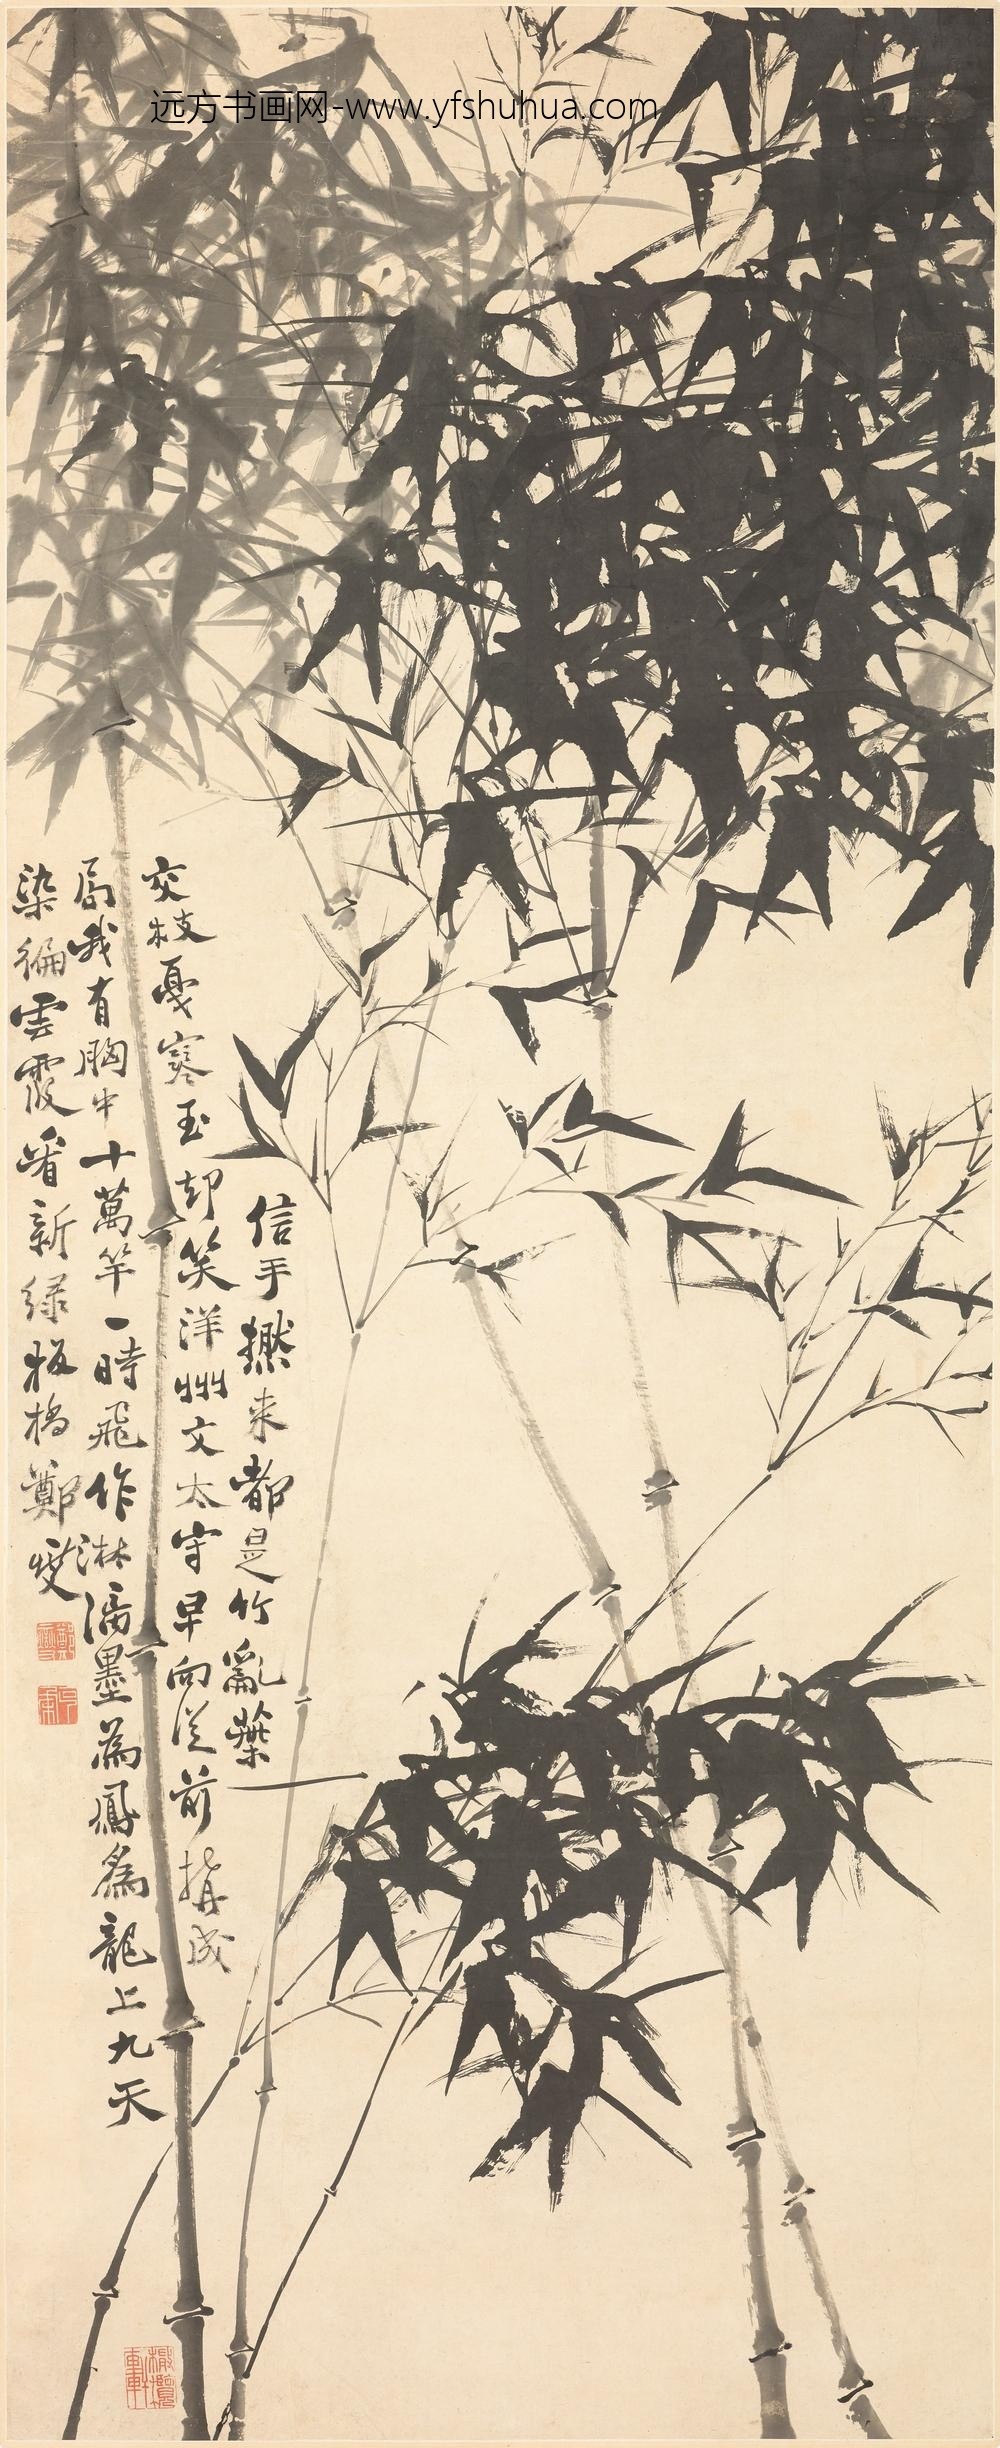 远方书画网-www.yfshuhua.com
信手拈来都是竹亂葉
交枝戞寒玉却笑洋州文太守早向從前構成
局我有胸中十萬竿一時飛作淋漓墨為鳳為龍上九天
染徧雲霞看新綠板橋鄭燮
鄭燮
橄欖軒